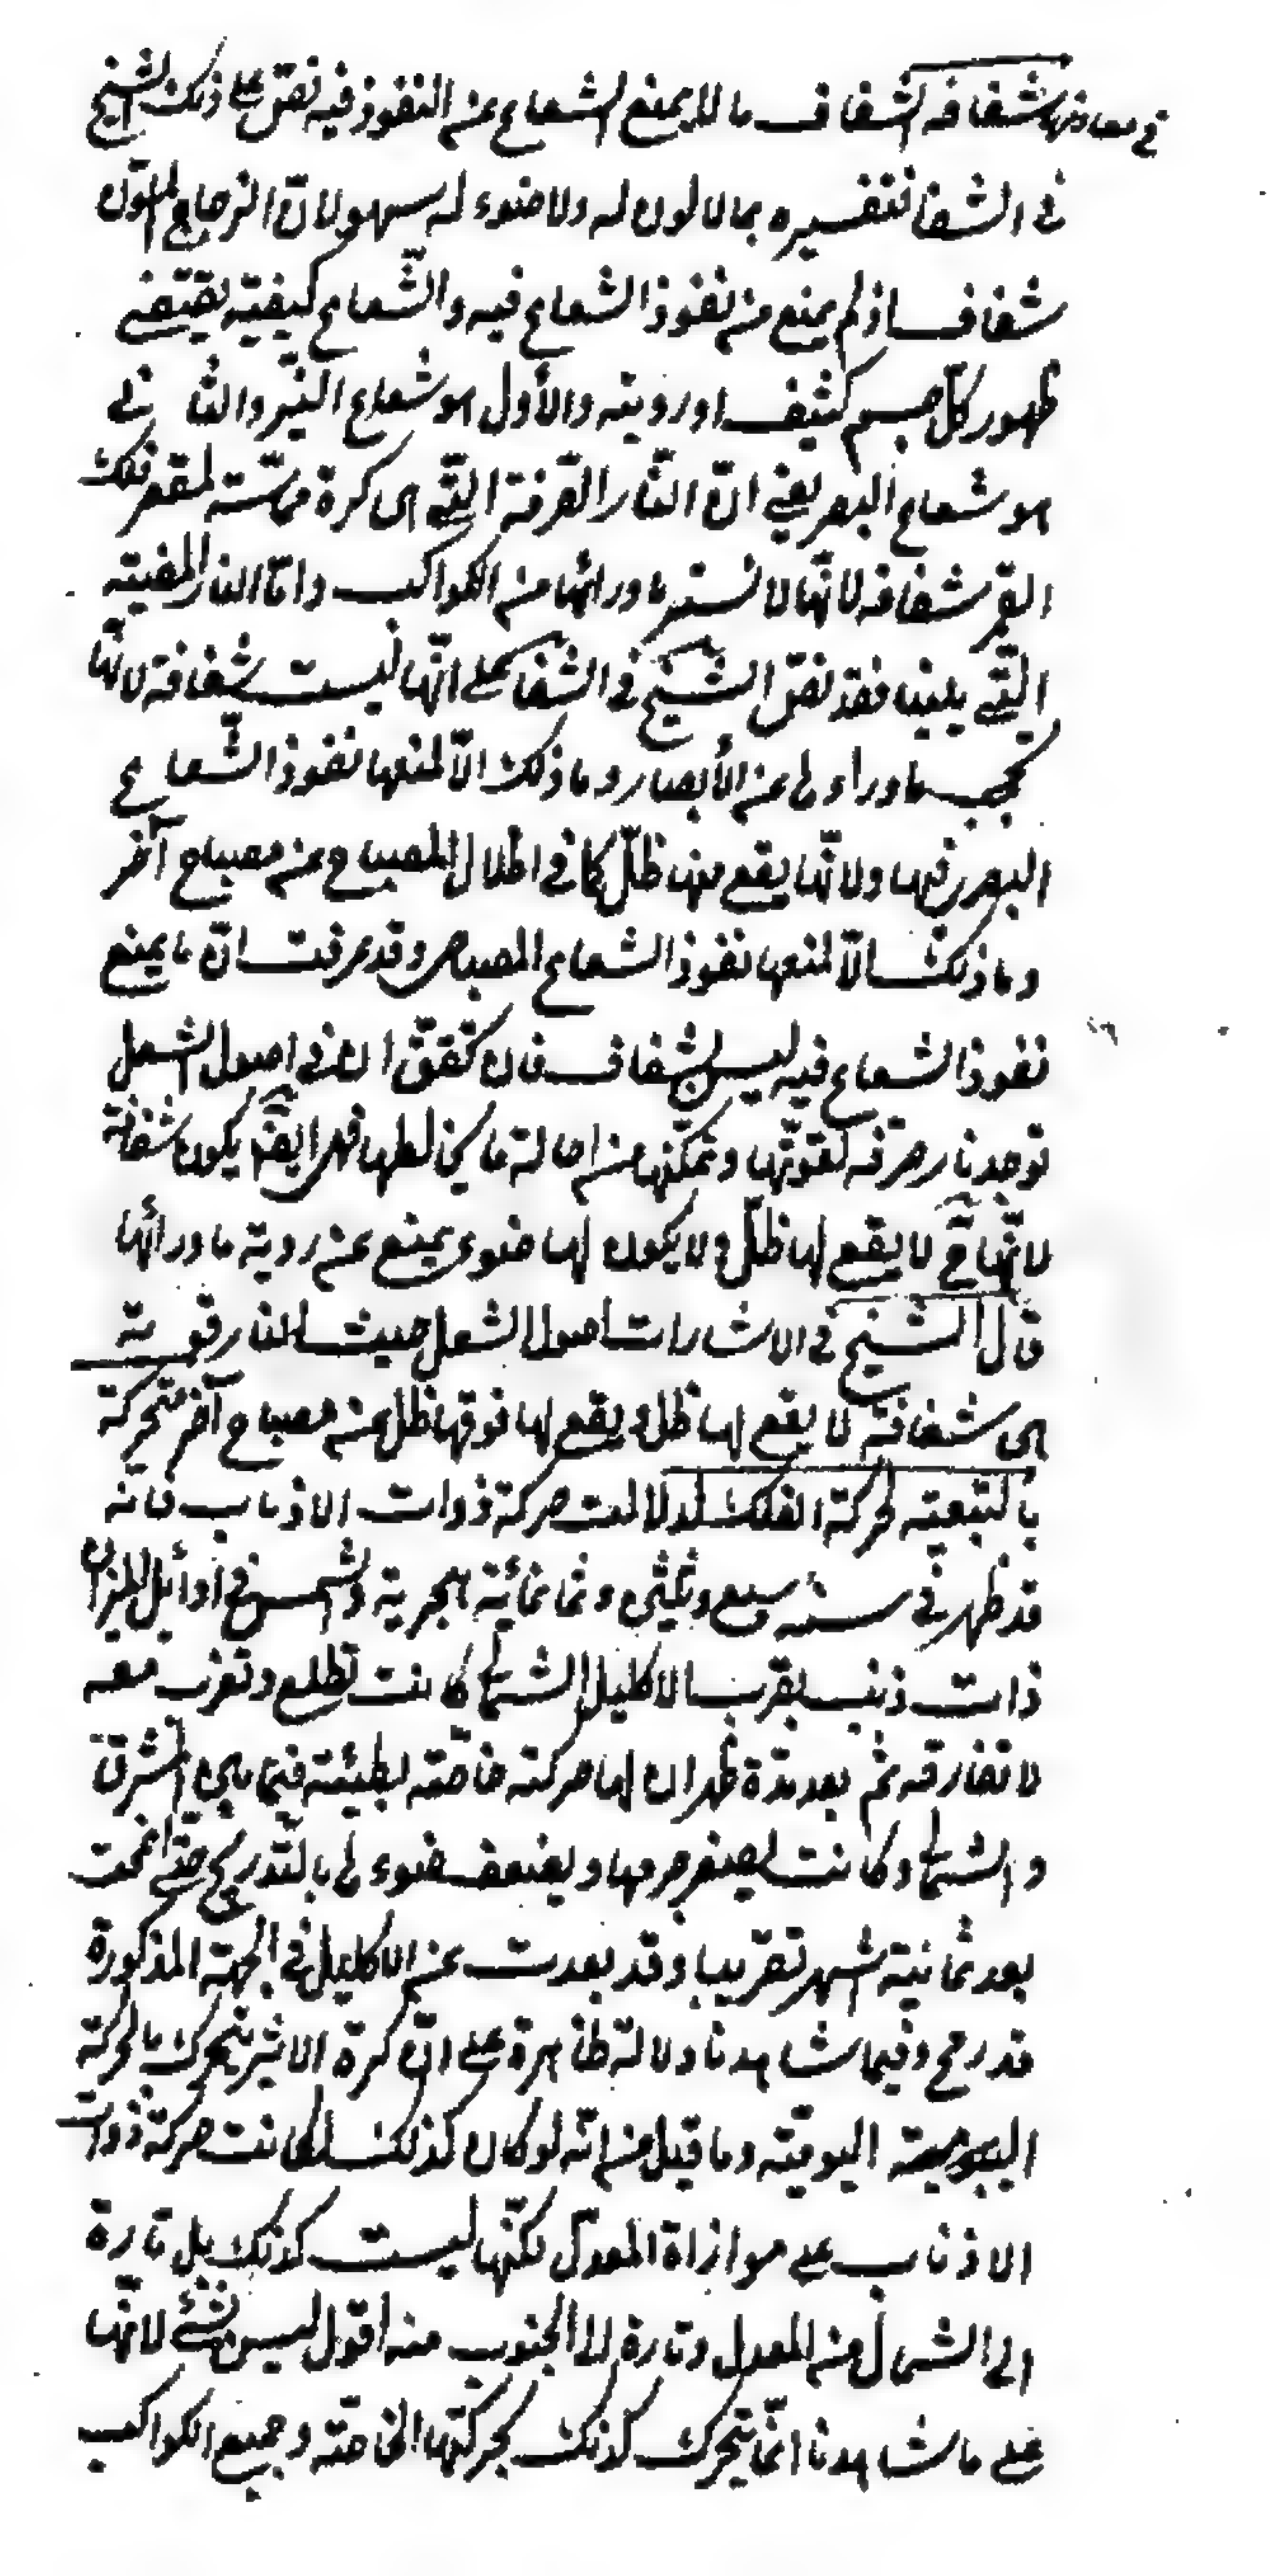 في معادنها شفافه الشفاف ما لا يمنع الشعاع عن النفوذ فيه نص على ذلك الشيخ
في الشفا فتفسيره بما لا لون له ولا ضوء له سهو لان الزجاج الملون
شفاف اذ لم يمنع من نفوذ الشعاع فيه والشعاع كيفية يقتضي
ظهور كل جسم كثيف او رويته والأول هو شعاع النير والثاني
هو شعاع البصر يعني ان النار الصرفة التي هي كرة مماسته لمقعر فلك
القمر شفافه لانها لا تستر ما ورائها من الكواكب واما النار المضيئة
التي يلينا فقد نص الشيخ في الشفا على انها ليست شفافة لانها
تحجب ماوراءها عن الأبصار وما ذلك الا لمنعها نفوذ الشعاع
البصر فيها ولانها يقع منها ظل كما في اظلال المصباح عن مصباح آخر
وما ذلك الا لمنعها نفوذ الشعاع المصباح وقد عرفت ان ما يمنع
نفوذ الشعاع فيه ليس بشفاف فان تحقق ان في اصول الشعل
توجد نار صرفه لقوتها وتمكنها من احالة ما يخالطها فهي ايضا يكون شفافة
لانها ح لا يقع لها ظل ولا يكون لها ضوء يمنع عن روية ما ورائها
قال الشيخ في الاشارات اصول الشعل حيث النار قوية
هي شفافة لا يقع لها ظل ويقع لما فوقها ظل عن مصباح آخر متحركة
بالتبعية لحركة الفلك لدلالت حركة ذوات الاذناب فانه
قد ظهر في سنة سبع وثلثين وثمانمائة هجرية والشمس في أوائل الميزان
ذات ذنب بقرب الاكليل الشمالي كانت تطلع وتغرب معه
لا تفارقه ثم بعد مدة ظهر ان لها حركة خاصة بطيئة فيما بين المشرق
والشمالي وكانت يصغر جرمها ويضعف ضوءها بالتدريج حتى انمحت
بعد ثمانية اشهر تقريبا وقد بعدت عن الاكليل في الجهة المذكورة
قدر رمح وفيما شاهدنا دلالة ظاهرة على ان كرة الاثير يتحرك بالحركة
اليومية وما قيل من انه لو كان كذلك لكانت حركة ذوات
الاذناب على موازاة المعدل لكنها ليست كذلك بل تارة
الى الشمال من المعدل وتارة الى الجنوب منه اقول ليس بشئ لانها
على ما شاهدنا انما يتحرك كذلك بحركتها الخاصة وجميع الكواكب